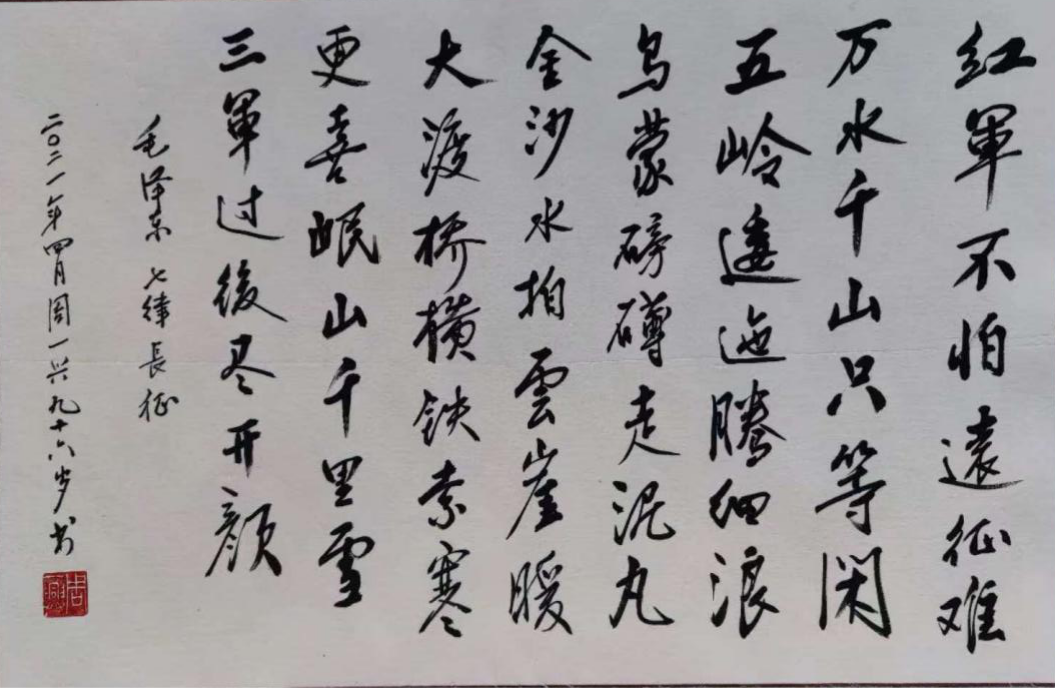 红軍不怕遠征难
万水千山只等闲
五岭逶迤腾细浪
乌蒙磅礴走泥丸
金沙水拍雲崖暖
大渡桥横铁索寒
更喜岷山千里雪
三軍过後尽开颜
毛泽东 七律長征
二〇二一年四月周一兴九十六岁书